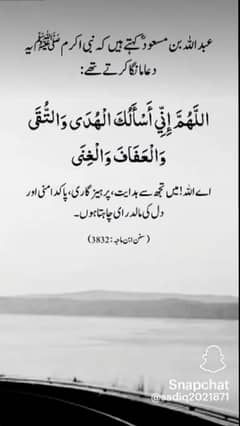 عبداللہ بن مسعودؓ کہتے ہیں کہ نبی اکرم ﷺ یہ
دعا مانگا کرتے تھے:
اللَّهُمَّ إِنِّي أَسْأَلُكَ الْهُدَى وَالتُّقَى
وَالْعَفَافَ وَالْغِنَى
اے اللہ! میں تجھ سے ہدایت، پرہیزگاری، پاکدامنی اور
دل کی مالدرای چاہتا ہوں۔
(سنن ابن ماجہ: 3832)
Snapchat
@sadiq2021671